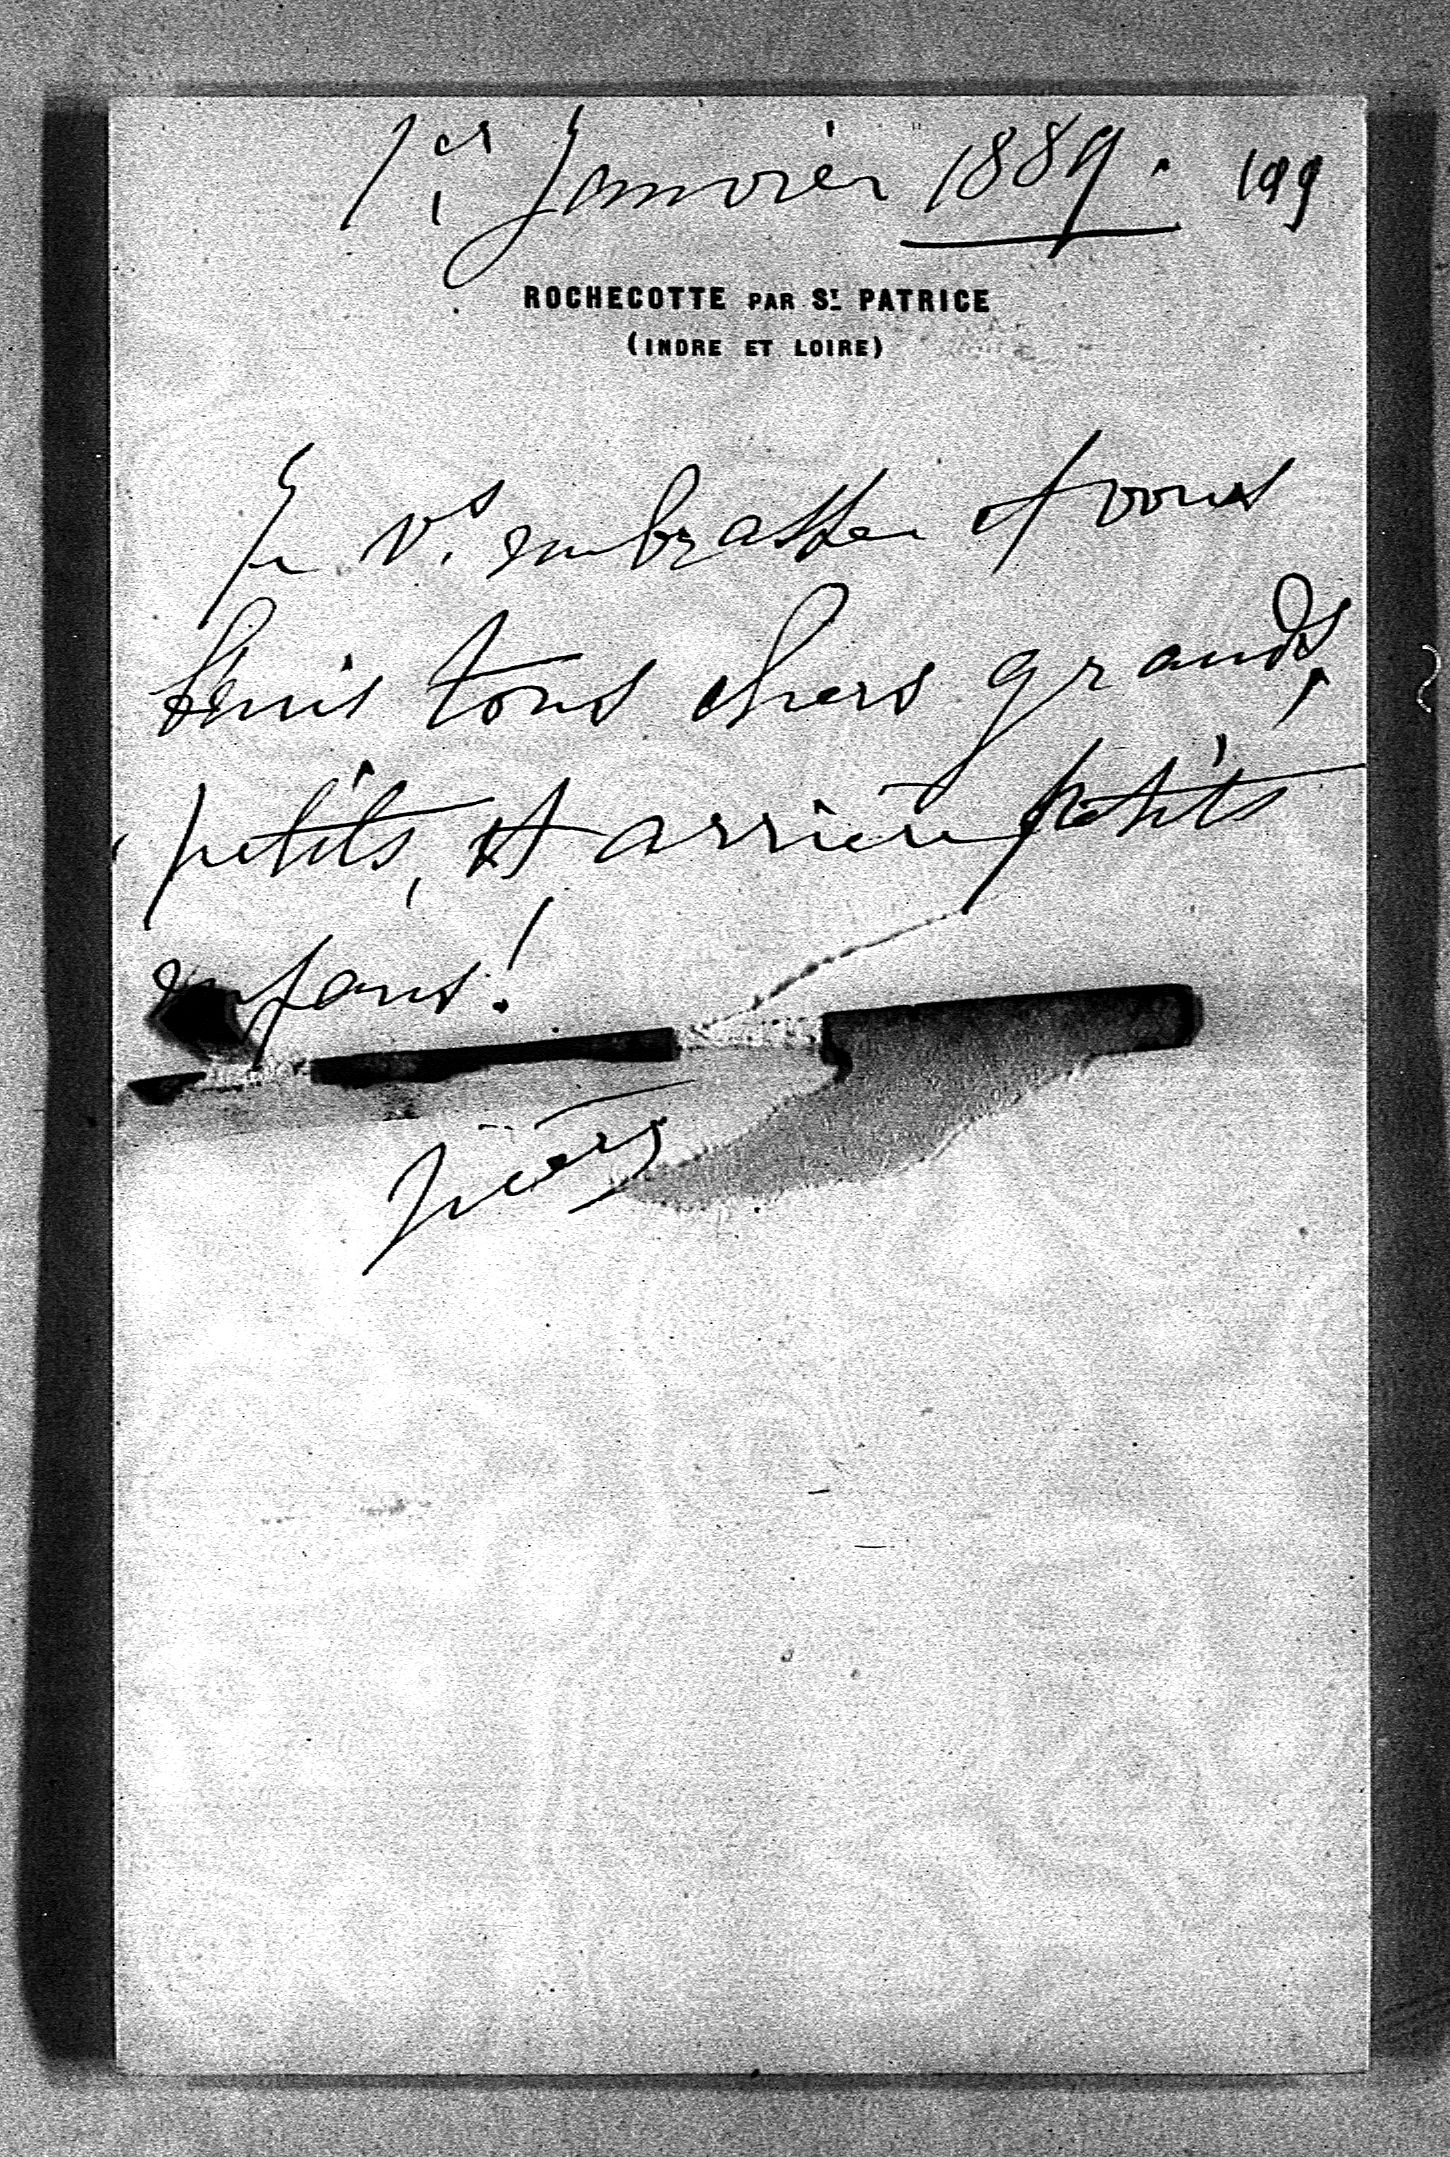 1er Janvier 1889. 199
ROCHECOTTE PAR St. PATRICE
(INDRE ET LOIRE)
Je vs. embrasse et vous
bénis tous chers grands,
petits, et arrière petits
enfans!